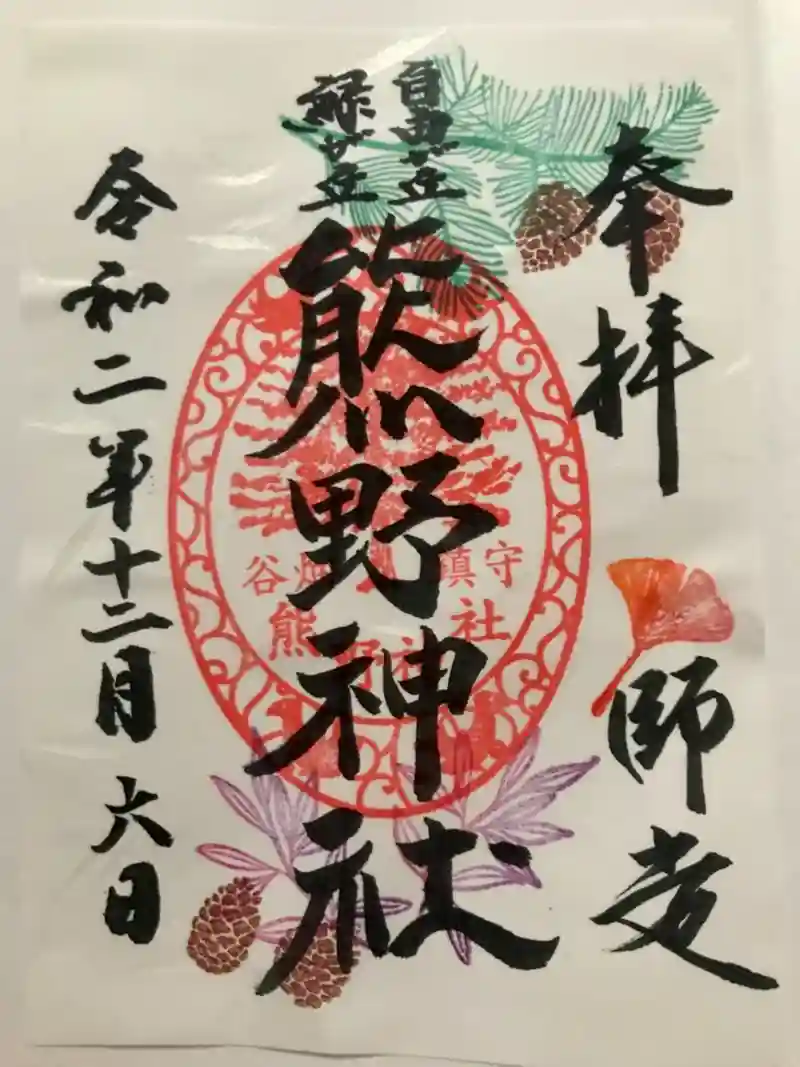 奉拝
師走
自由が丘
緑が丘
熊野神社
谷畑鎮守
熊野神社
令和二年十二月六日